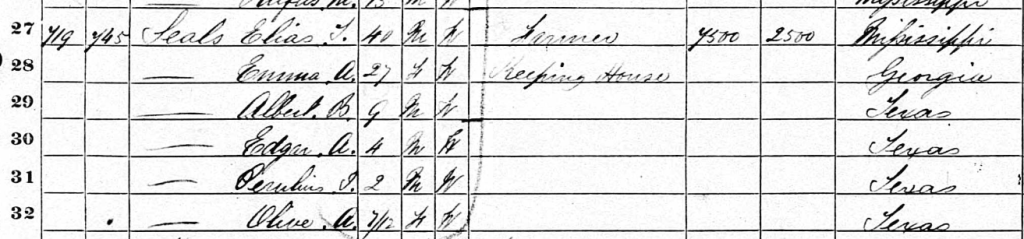 Mississippi
27 719 745 Seals Elias T. 40 M W Farmer 7500 2500 Mississippi
28 — Emma A. 27 F W Keeping House Georgia
29 — Albert B. 9 M W Texas
30 — Edgar A. 4 M W Texas
31 — T. 2 M W Texas
32 — Olive A. 7/12 F W Texas